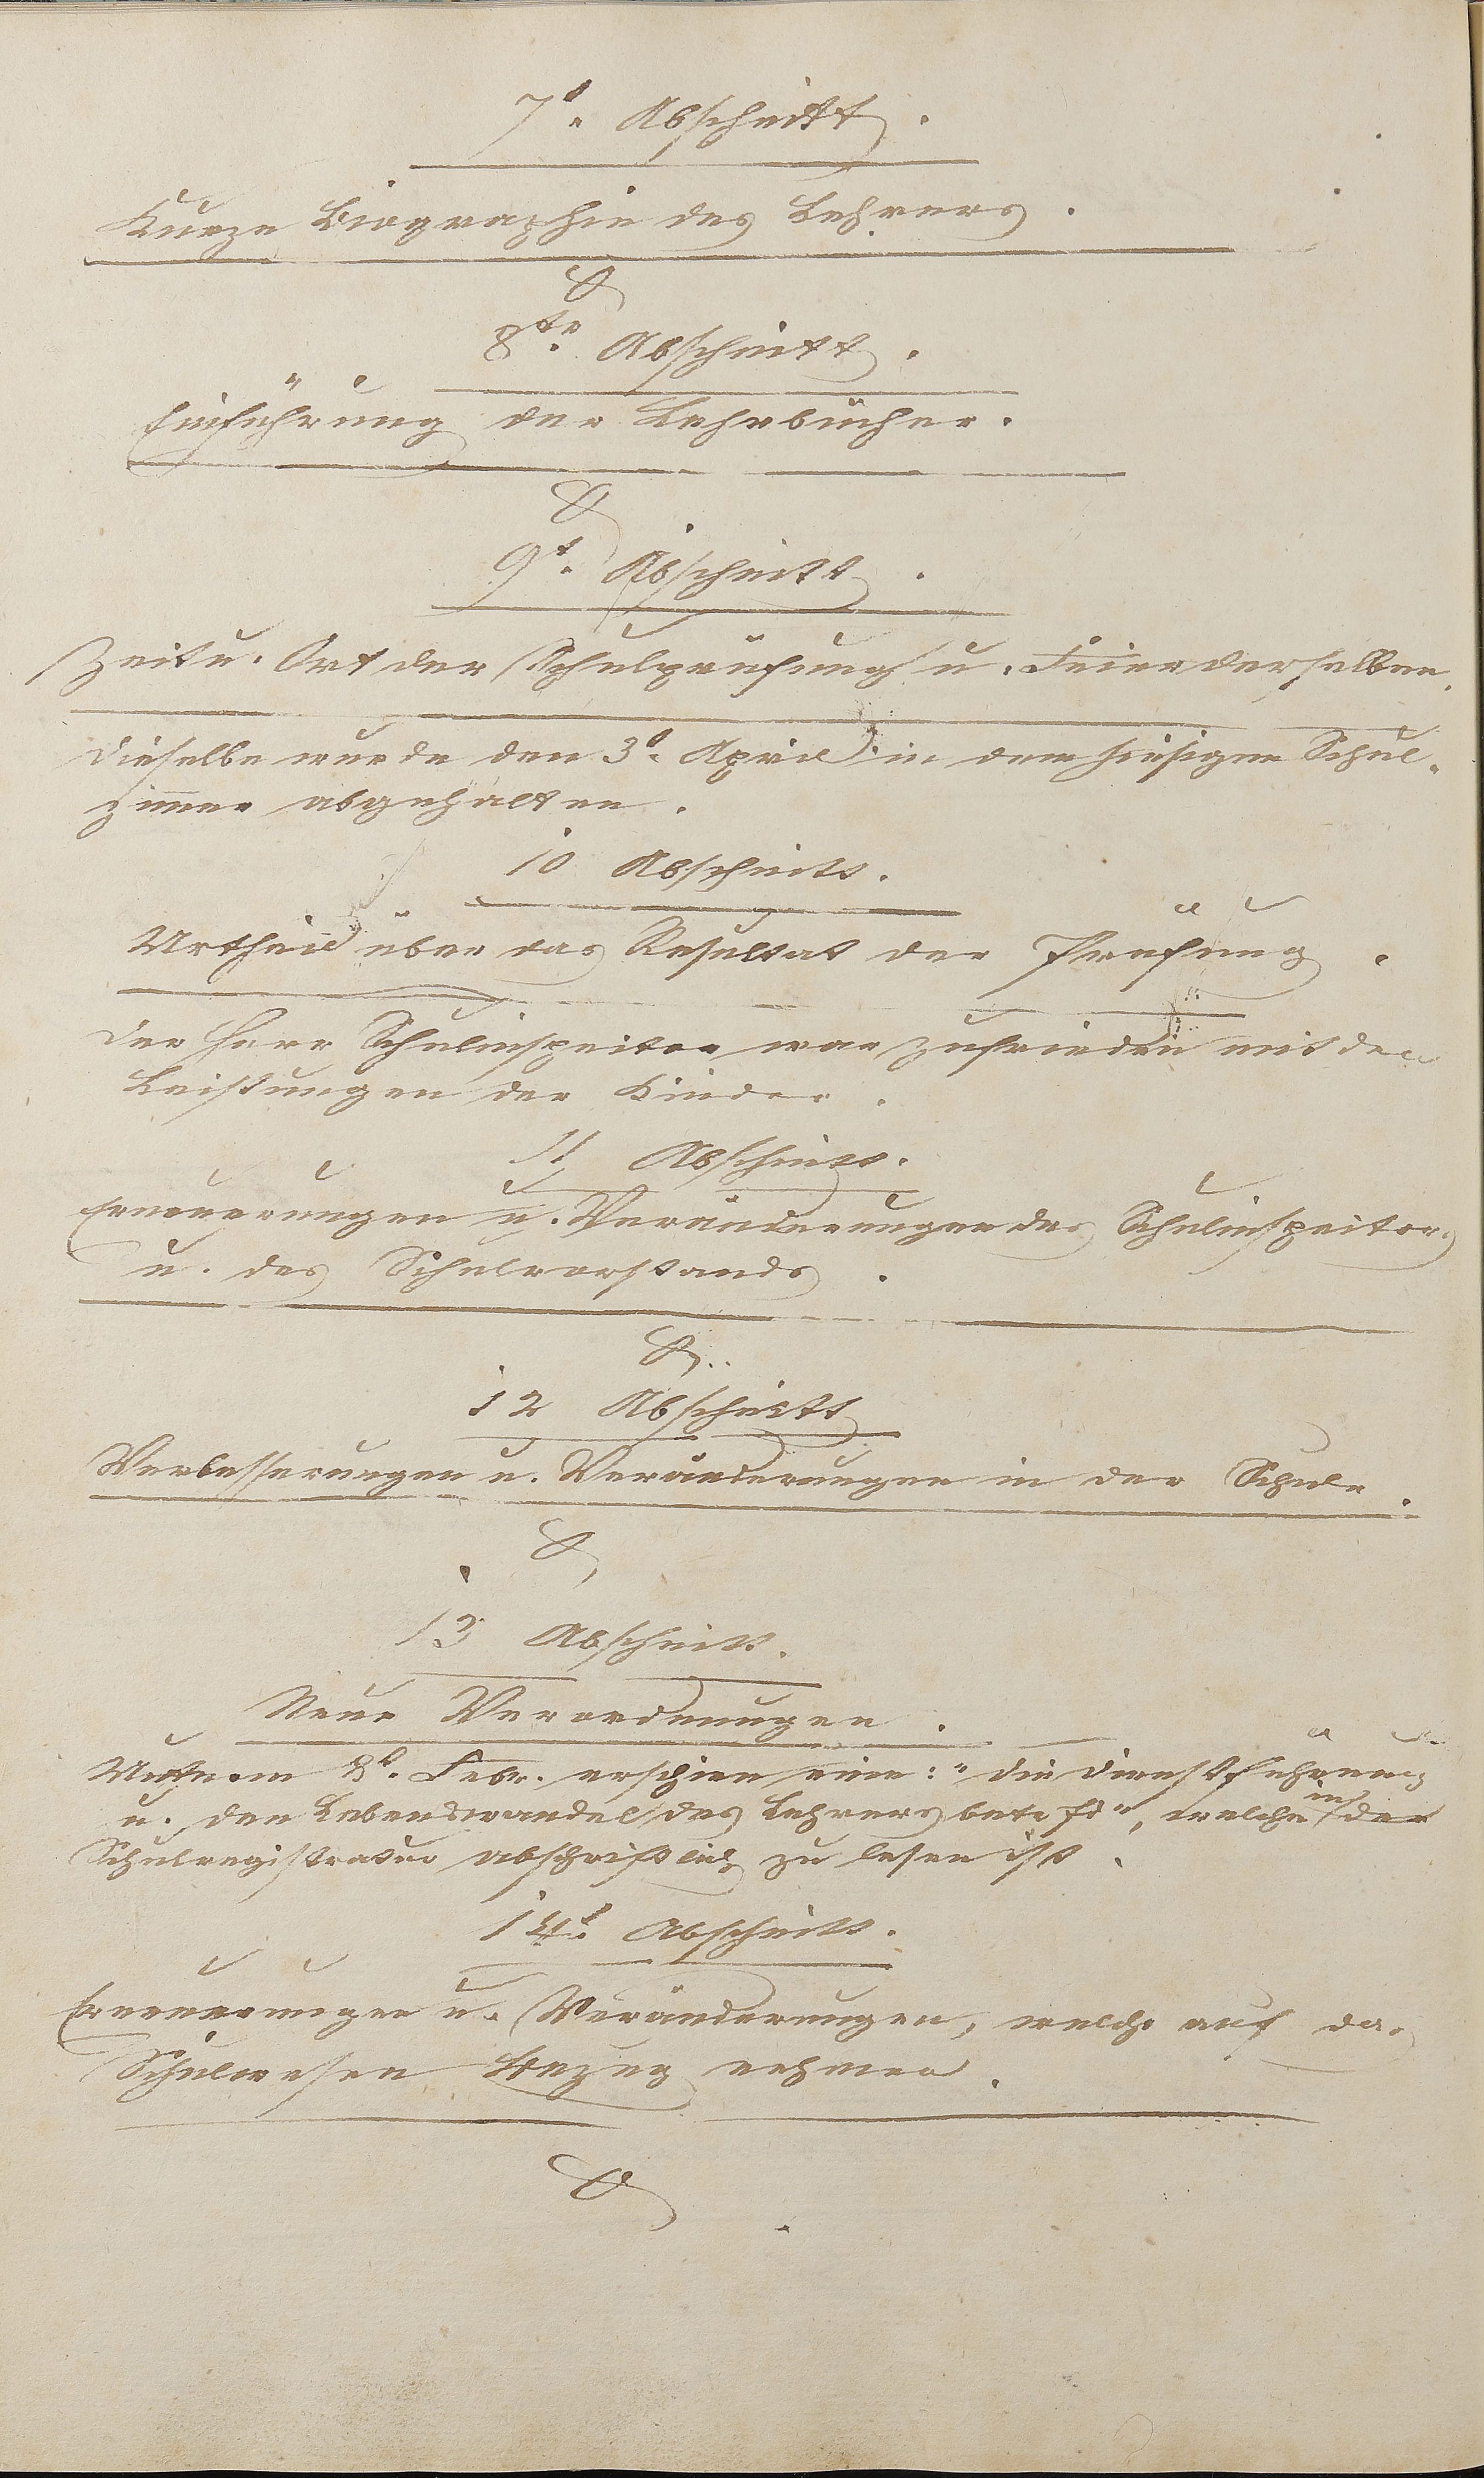 7t. Abschnitt.
Kurze Biographie des Lehrers.
8te. Abschnitt.
Einführung der Lehrbücher.
9t. Abschnitt.
Zeit u. Ort der Schulprüfung u. Feier derselben.
Dieselbe wurde den 3t. April in dem hiesigen Schul-
zimmer abgehalten.
10 Abschnitt.
Urtheil über das Resultat der Prüfung.
Der Herr Schulinspector war zufrieden mit den
Leistungen der Kinder.
11 Abschnitt.
Erneuerungen u. Veränderungen des Schulinspectors
u. des Schulvorstands.
12 Abschnitt
Verbesserungen u. Veränderungen in der Schule.
13 Abschnitt.
Neue Verordnungen.
vom 8t. Febr. erschien eine: "die Dienstführung
u. den Lebenswandel des Lehrers betrfd", welche in der
Schulregistratur abschriftlich zu lesen ist.
14t. Abschnitt.
Erneuerungen u. Veränderungen, welche auf das
Schulwesen Bezug nehmen.